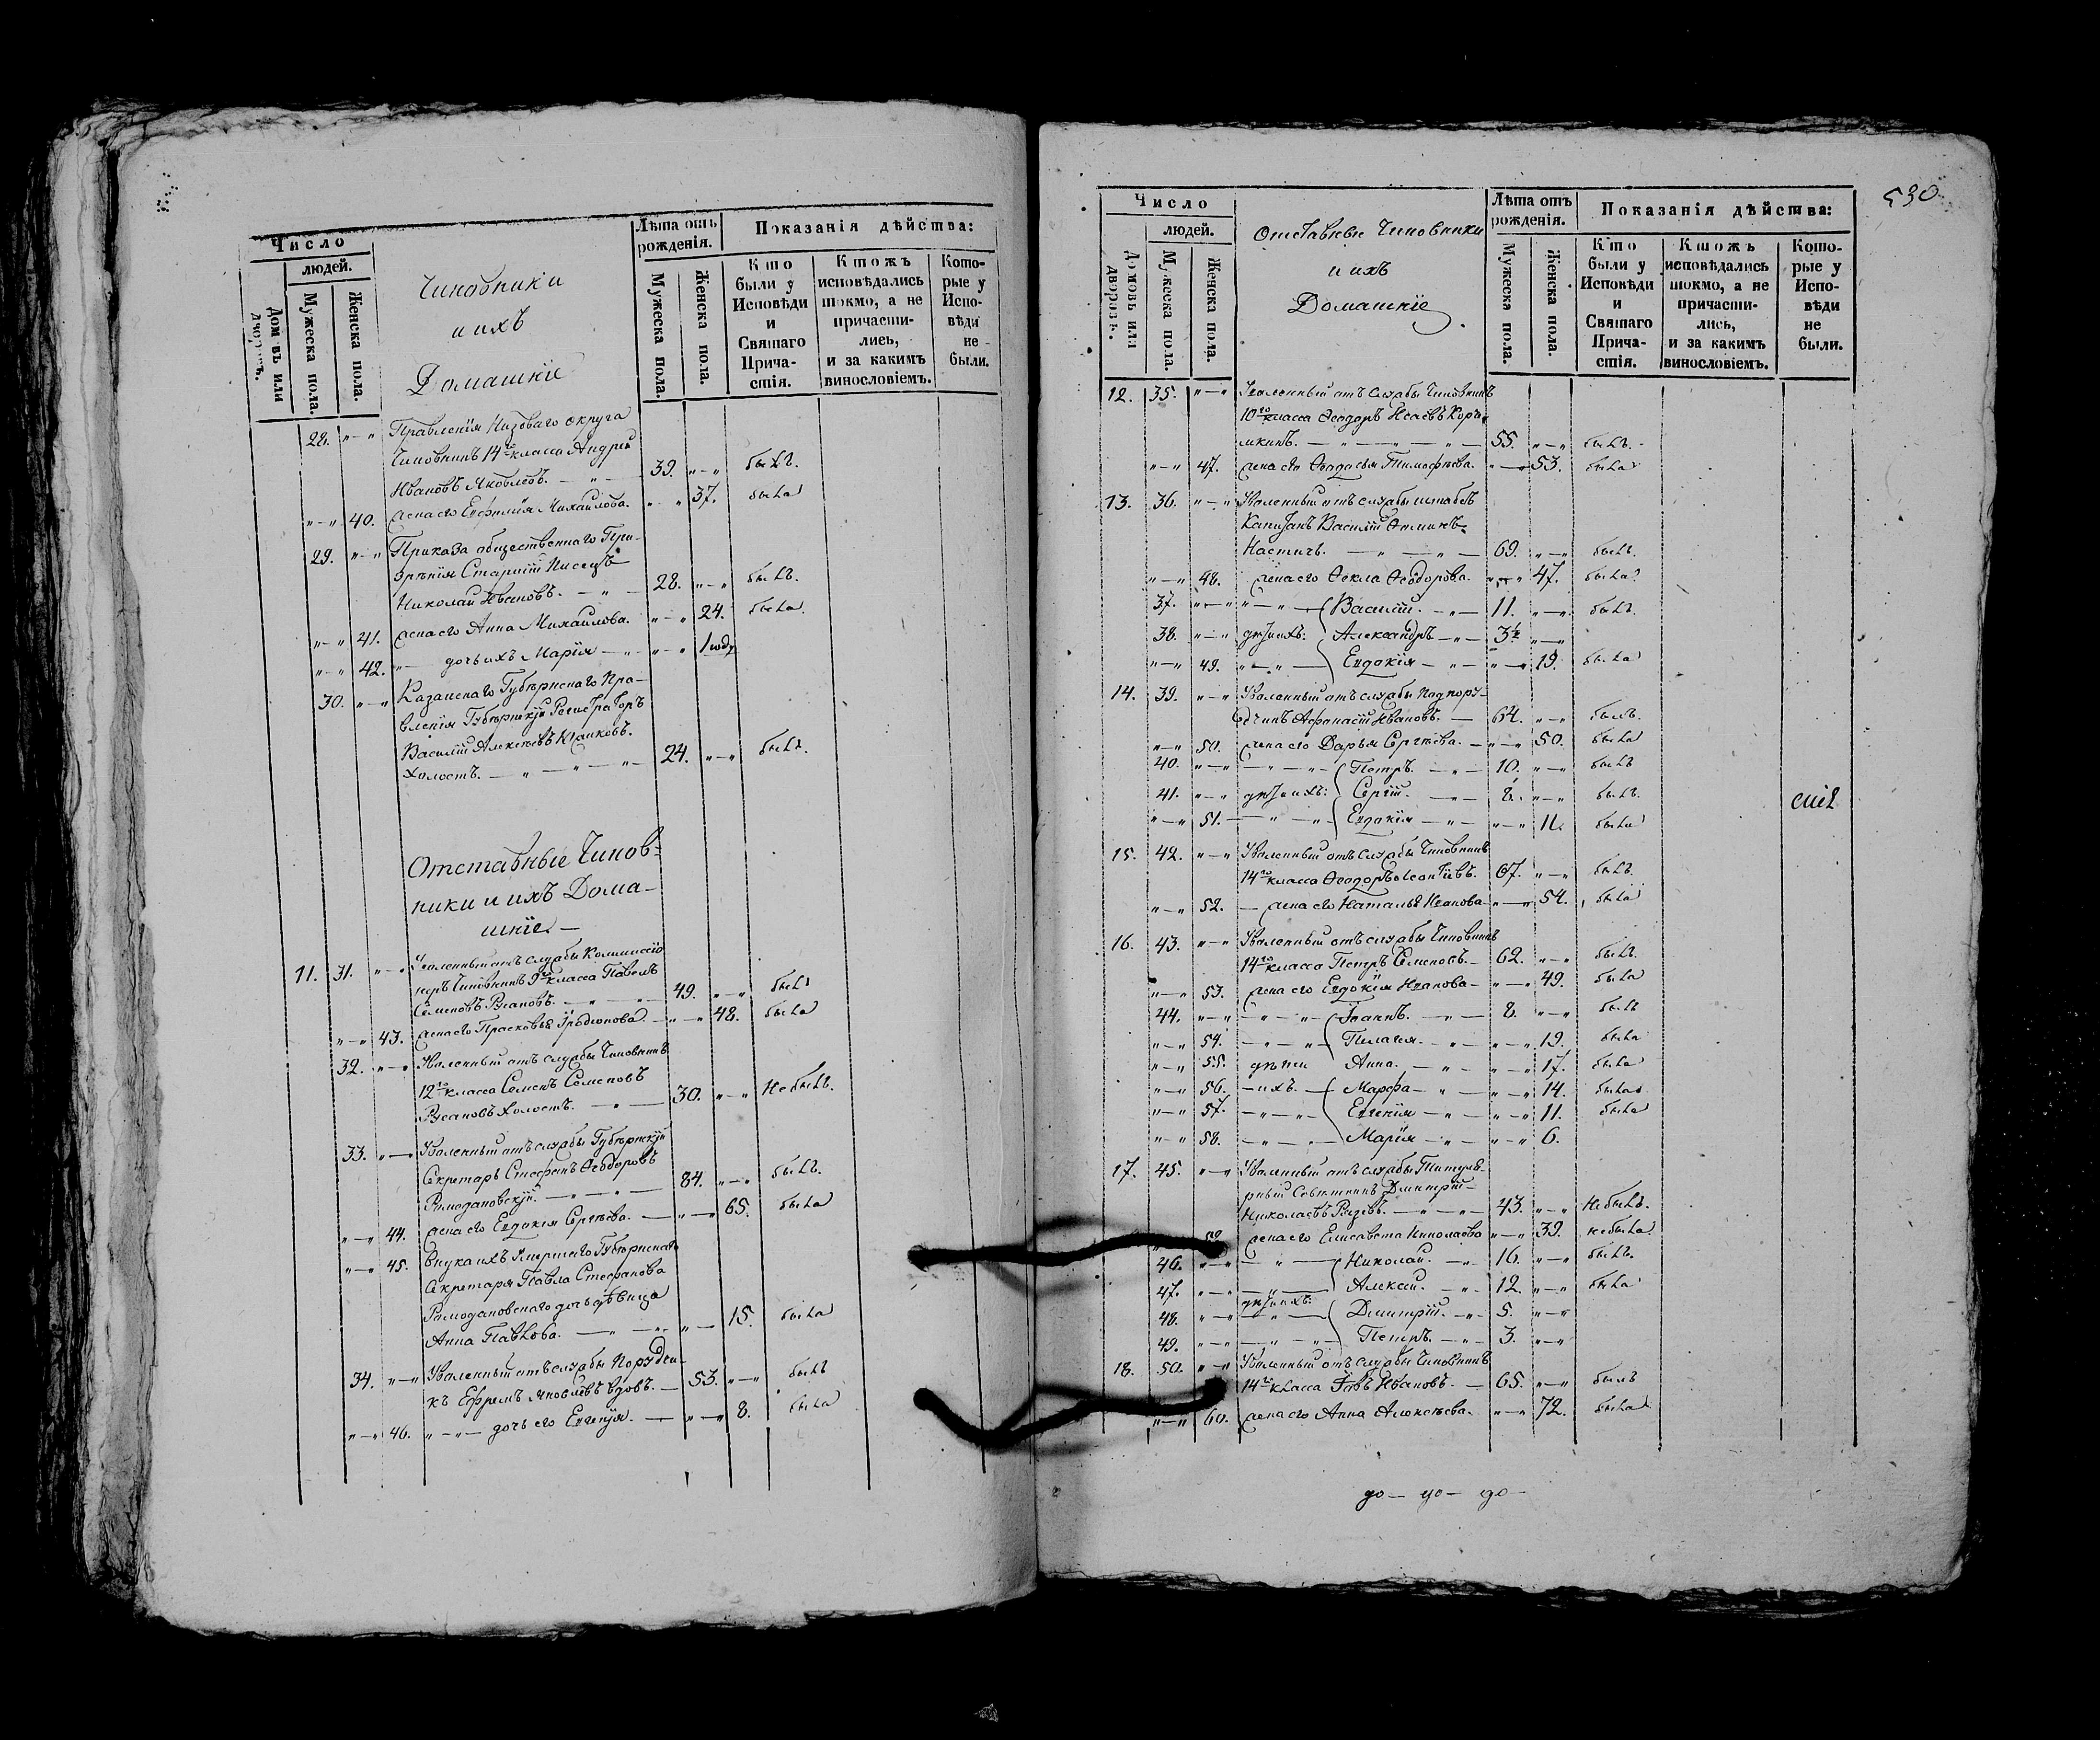 Число
людей.
Домовъ или дворовъ.
Мужеска пола.
Женска пола.
Чиновники
и ихъ
Домашніе
Лѣта отъ
рожденія.
Мужеска пола.
Женска пола.
Показанія дѣйства:
Кто
были у
Исповѣди
и
Святаго
Прича-
стія.
Ктожъ
исповѣдались
токмо, а не
причасти-
лись,
и за какимъ
винословіемъ.
Кото-
рые у
Испо-
вѣди
не
были.
28. „ — „ Правленія Низоваго округа
Чиновникъ 14го класса Андрей
Ивановъ Яковлевъ. — „ — 39. „ — „ былъ.
„ — „ 40. жена его Евфимія Михаилова. „ — „ 37. была
29. „ — „ Приказа общественнаго При-
зрѣнія Старшій Писецъ
Николай Ивановъ. — „ — 28. „ — „ былъ.
„ — „ 41. жена его Анна Михаилова. „ — „ 24. была.
„ — „ 42. „ — дочь ихъ Марія — „ — „ — „ 1 годъ
30. „ — „ Казанскаго Губернскаго Пра-
вленія Губернскій Регистраторъ
Василій Алексѣевъ
холостъ. — „ — „ — „ — 24. „ — „ былъ.
Отставные Чинов-
ники и ихъ Дома-
шніе. —
11. 31. „ — „ Уволенный отъ службы Коммиссіо-
неръ Чиновникъ 9го класса Павелъ
Семеновъ Русановъ. — „ — „ — 49. „ — „ былъ
„ — „ 43. жена его Прасковья Иродіонова. — „ — „ 48. была
32. „ — „ Уволенный отъ службы Чиновникъ
12го класса Семенъ Семеновъ
Русановъ холостъ. — „ — 30. „ — „ Не былъ.
33. „ — „ Уволенный отъ службы Губернскій
Секретарь Стефанъ Ѳеодоровъ
Ромодановскій. — „ — „ — 84. „ — „ былъ.
„ — „ 44. жена его Евдокія Сергѣева. — „ — „ 65. была
„ — „ 45. Внука ихъ Умершаго Губернскаго
Секретаря Павла Стефанова
Ромодановскаго дочь дѣвица
Анна Павлова. — „ — „ — „ — 15. была
34. „ — „ Уволенный отъ службы Поручи-
къ Ефремъ Яковлевъ вдовъ. — 53. „ — „ былъ
„ — „ 46. „ — „ — дочь его Евгенія. — „ — „ 8. была
530.
Число
людей.
Домовъ или дворовъ.
Мужеска пола.
Женска пола.
Отставные Чиновники
и ихъ
Домашніе
Лѣта отъ
рожденія.
Мужеска пола.
Женска пола.
Показанія дѣйства:
Кто
были у
Исповѣди
и
Святаго
Прича-
стія.
Ктожъ
исповѣдались
токмо, а не
причасти-
лись,
и за какимъ
винословіемъ.
Кото-
рые у
Испо-
вѣди
не
были.
12. 35. „ — „ Уволенный отъ службы Чиновникъ
10го класса Ѳеодоръ Исаевъ Коря-
кинъ. — „ — „ — „ — 55. „ — „ былъ.
„ — „ 47. жена его Ѳеодосья Тимофѣева. „ — „ 53. была
13. 36. „ — „ Уволенный отъ службы штабсъ
Капитанъ Василій
— „ — „ — 69. „ — „ былъ.
„ — „ 48. жена его Ѳекла Ѳеодорова. „ — „ 47. была
37. „ — „ „ — „ — Василій. — „ — 11. „ — „ былъ.
38. „ — „ дѣти ихъ: Александръ — „ — 3½ „ — „
„ — „ 49. „ — „ — Евдокія — „ — „ — „ 19. была
14. 39. „ — „ Уволенный отъ службы Подпору-
чикъ Афанасій Ивановъ. — 64. „ — „ былъ.
„ — „ 50. жена его Дарья Сергѣева. — „ — „ 50. была
40. „ — „ — „ — „ — Петръ. — „ — 10. „ — „ былъ
41. „ — „ дѣти ихъ: Сергій. — „ — 8. „ — „ былъ.
„ — „ 51. — „ — „ — Евдокія — „ — „ — „ 11. была
15. 42. „ — „ Уволенный отъ службы Чиновникъ
14го класса Ѳеодоръ Леонтіевъ. 67. „ — „ былъ.
„ — „ 52. — жена его Наталья Иванова „ — „ 54. была
16. 43. „ — „ Уволенный отъ службы Чиновникъ
14го класса Петръ Семеновъ. — 62. „ — „ былъ.
„ — „ 53. жена его Евдокія Иванова — „ — „ 49. была
44. „ — „ — „ — „ — Іоаннъ. — „ — 8. „ — „ былъ
„ — „ 54. — „ — „ Пелагея. — „ — „ — „ 19. была
„ — „ 55. дѣти Анна. — „ — „ — „ 17. была
„ — „ 56. — ихъ. — Марфа — „ — „ — „ 14. была
„ — „ 57. — „ — „ — Евгенія — „ — „ — „ 11. была
„ — „ 58. — „ — „ — Марія — „ — „ — „ 6.
17. 45. „ — „ Уволенный отъ службы Титуляр-
рный Совѣтникъ Дмитрій
Николаевъ — „ — „ — 43. „ — „ Не былъ.
жена его Елисавета Николаева „ — „ 39. не была
46. „ — „ — „ — Николай. — „ — 16. „ — „ былъ.
47. „ — „ — „ — Алексѣй. — „ — 12. „ — „ была
дѣти ихъ:
48. „ — „ — „ — Дмитрій. — „ — 5. „ — „
49. „ — „ — „ — „ — Петръ. — „ — 3. „ — „
18. 50. „ — „ Уволенный отъ службы Чиновникъ
14го класса Іовъ Ивановъ. — 65. „ — „ былъ
„ — „ 60. жена его Анна Алексѣева. „ — „ 72. была